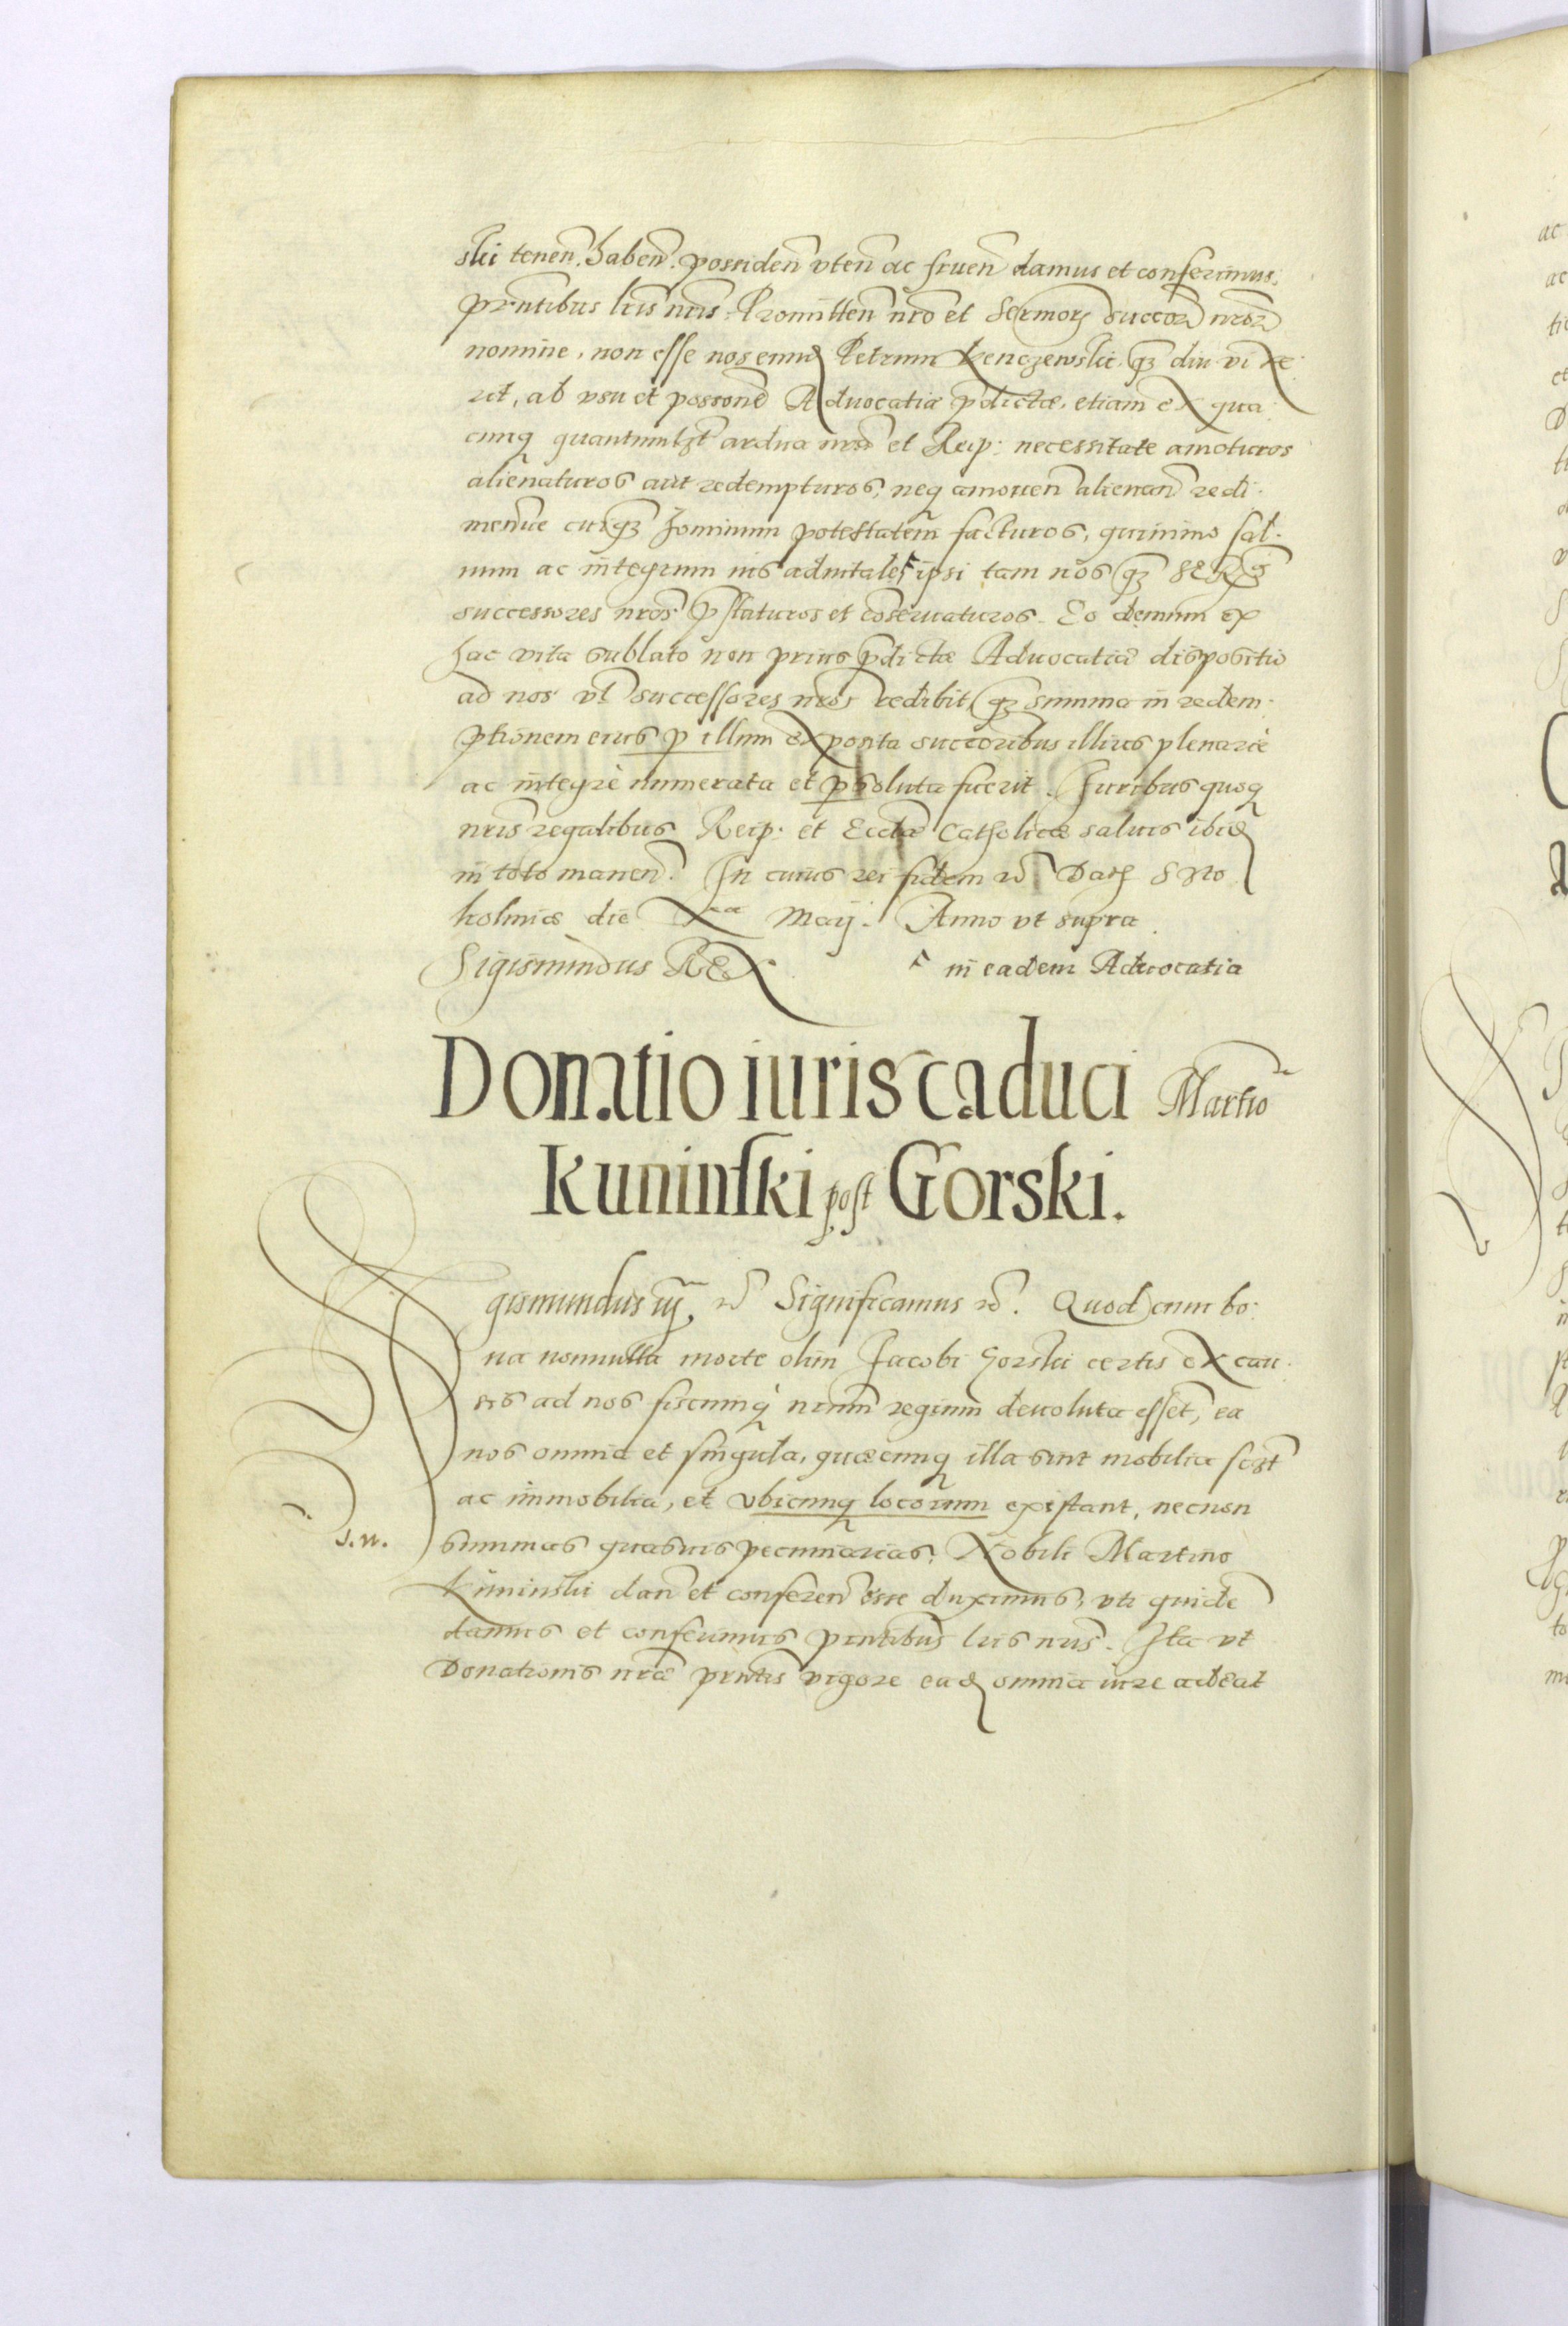 ski tenen. haben. possiden vten ac fruen damus et conferimus.
prntibus lris nris. Promitten nro et Sermor succor nror
nomine, non esse nos eund Petrum Kenczewski qz diu vixe
rit, ab vsu et possone Aduocatiæ pdictæ, etiam ex qua
cunq quantumlzt ardua nra et Reip: necessitate amoturos
alienaturos aut redempturos, neq amouen alienan redi
menue cuiqz hominum potestatem facturos, quinimo sal
uum ac integrum ius aduitale ipsi tam nos qz
successores nros pstaturos et conseruaturos. Eo demum ex
hac vita sublato non prius pdictæ Aduocatiæ dispositio
ad nos vl successores nros redibit, qz summa in redem
ptionem eius p illum exposita succoribus illius plenariè
ac integrè numerata et psoluta fuerit. Iuribus quoq
nris regalibus Reip: et Ecclæ Catholicæ saluis ibid
in toto manen. In cuius rei fidem Dat Sto
holmiæ die Maij. Anno vt supra.
Sigismundus REX
in eadem Aduocatia
Donatio iuris caduci Martino
Kuninski post Gorski.
Sigismundus iij, Significamus. Quod cum bo
na nonnulla morte olim Jacobi Gorski certis ex cau
sis ad nos fiscumq nrum regium deuoluta essent, ea
nos omnia et singula, quæcunq illa sunt mobilia sczt
ac immobilia, et vbicunq locorum existant, necnon
J. W.
summas quasuis pecuniarias, Nobili Martino
Kuninski dan et conferen esse duximus, vti quidē
damus et conferimus prntibus lris nris. Ita vt
Donationis nræ prntis vigore ead omnia iure adeat